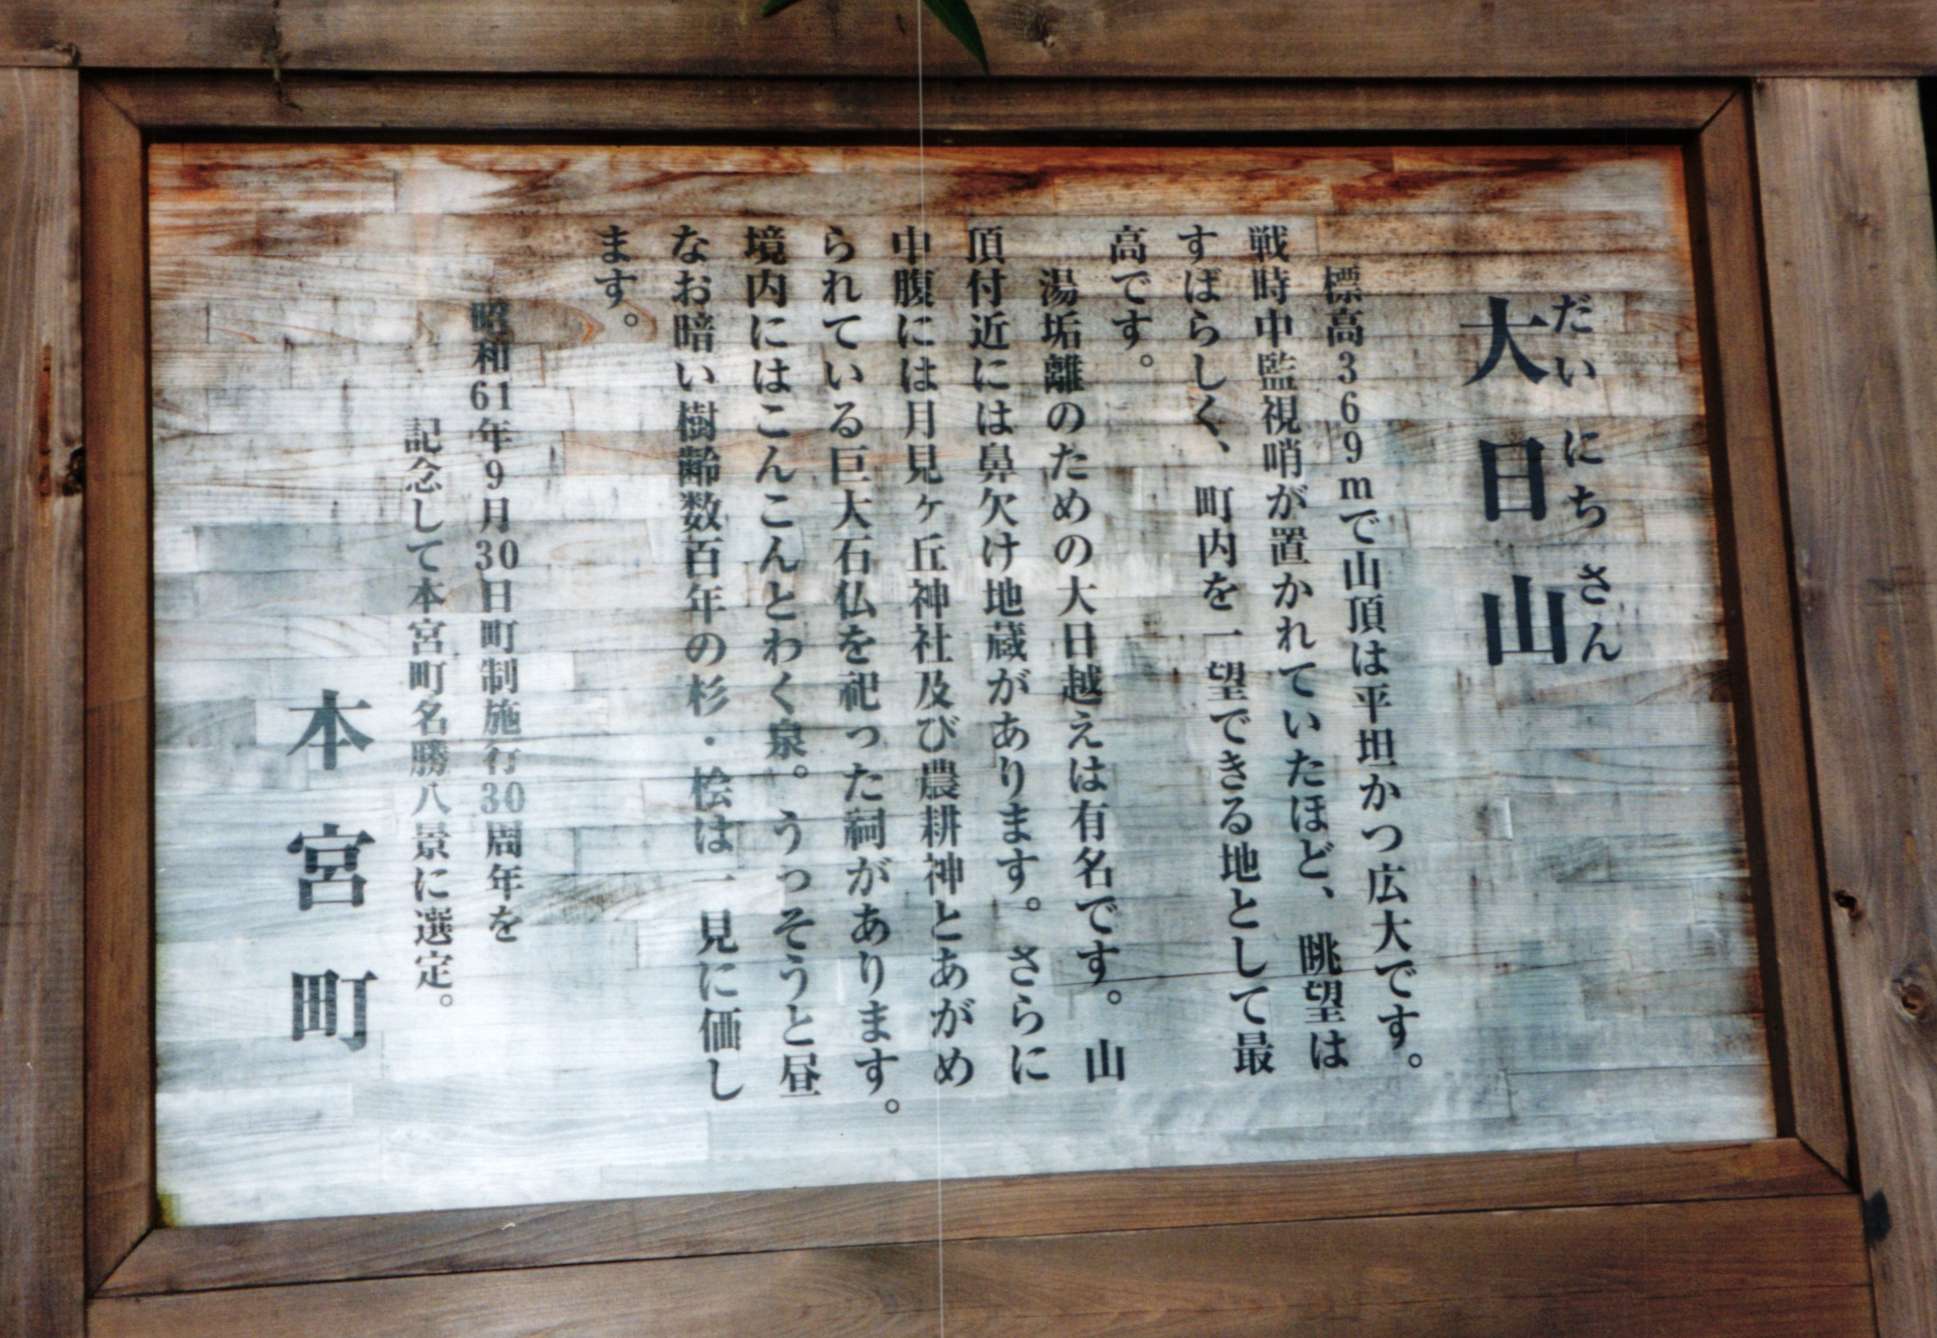 だいにちさん
大日山
標高369mで山頂は平坦かつ広大です。
戦時中監視哨が置かれていたほど、眺望は
すばらしく、町内を一望できる地として最
高です。
湯垢離のための大日越えは有名です。山
頂付近には鼻欠け地蔵があります。さらに
中腹には月見ヶ丘神社及び農耕神とあがめ
られている巨大石仏を祀った祠があります。
境内にはこんこんとわく泉。うっそうと昼
なお暗い樹齢数百年の杉・桧は一見に価し
ます。
昭和61年9月30日町制施行30周年を
記念して本宮町名勝八景に選定。
本宮町